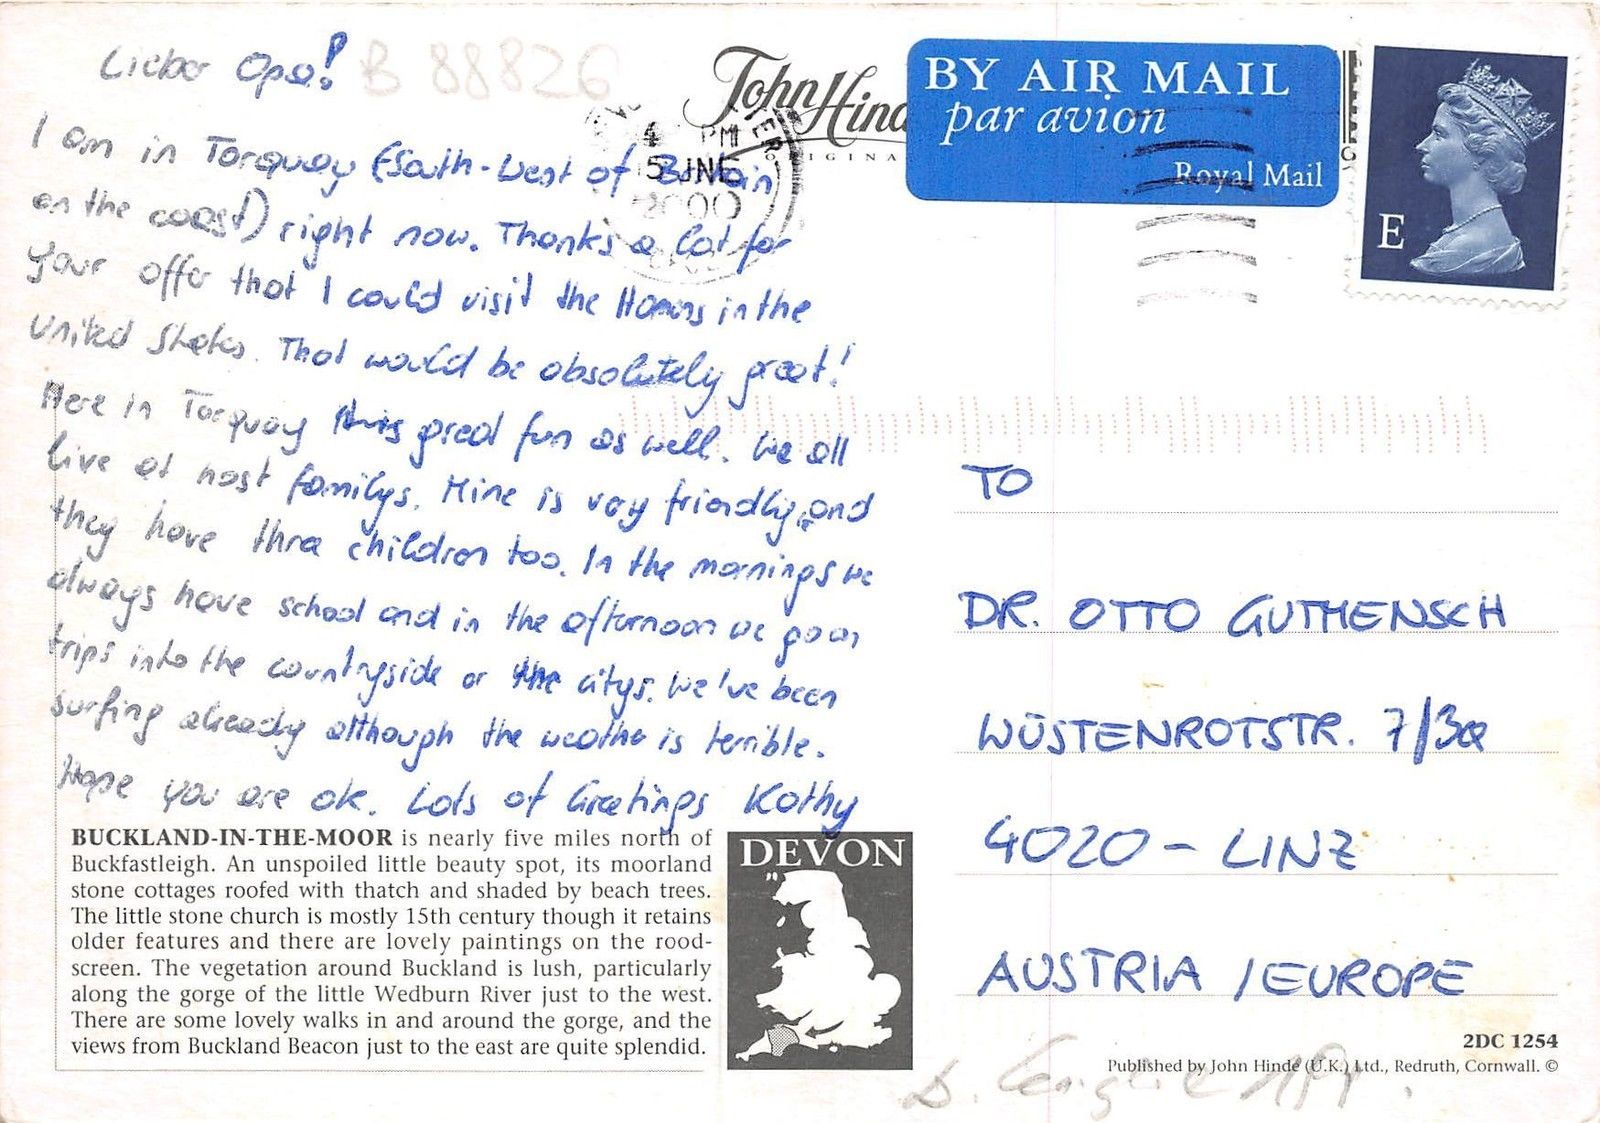 Lieber Opa!
B 88826
I am in Torquay (South-West of Britain
on the coast) right now. Thanks a lot for
your offer that I could visit the Homans in the
United States. That would be absolutely great!
Here in Torquay it is great fun as well. We all
live at host familys. Mine is very friendly, and
they have three children too. In the mornings we
always have school and in the afternoon we go on
trips into the countryside or the citys. We've been
surfing already although the weather is terrible.
Hope you are ok. Lots of Greetings Kathy
John Hinde
ORIGINA
4 PM
5 JNE
2000
BY AIR MAIL
par avion
Royal Mail
E
TO
DR. OTTO GUTHENSCH
WÜSTENROTSTR. 7/39
4020 - LINZ
AUSTRIA / EUROPE
BUCKLAND-IN-THE-MOOR is nearly five miles north of
Buckfastleigh. An unspoiled little beauty spot, its moorland
stone cottages roofed with thatch and shaded by beach trees.
The little stone church is mostly 15th century though it retains
older features and there are lovely paintings on the rood-
screen. The vegetation around Buckland is lush, particularly
along the gorge of the little Wedburn River just to the west.
There are some lovely walks in and around the gorge, and the
views from Buckland Beacon just to the east are quite splendid.
DEVON
2DC 1254
Published by John Hinde (U.K.) Ltd., Redruth, Cornwall. ©